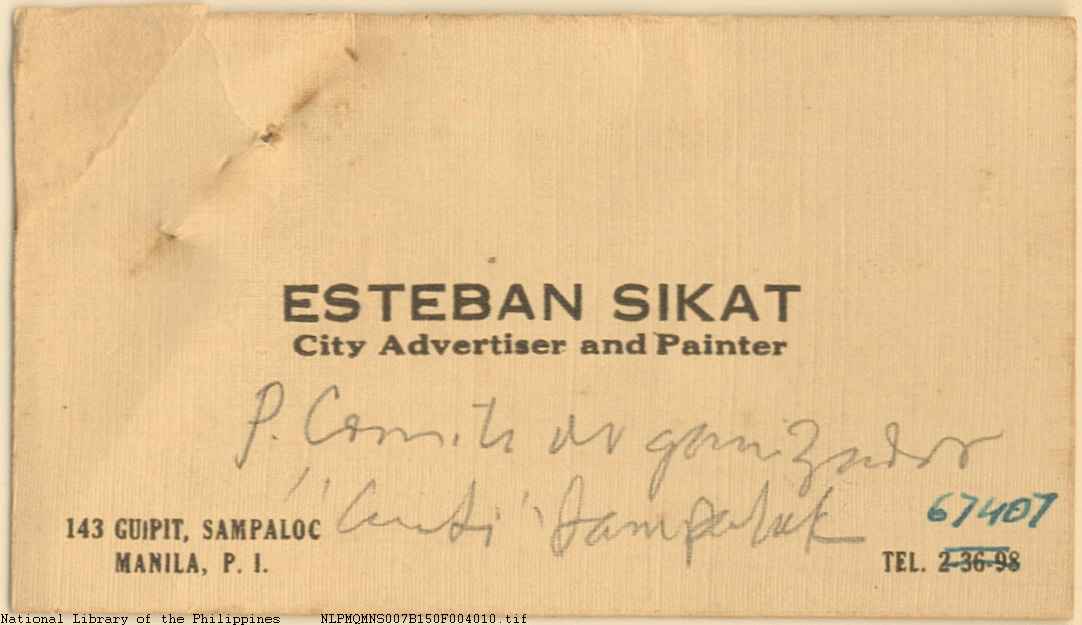 ESTEBAN SIKAT
City Advertiser and Painter
P. Comite organizador
Sampalok
67407
143 GUIPIT, SAMPALOC
MANILA, P. I.
TEL. 2-36-98
National Library of the Philippines NLPMQMNS007B150F004010.tif